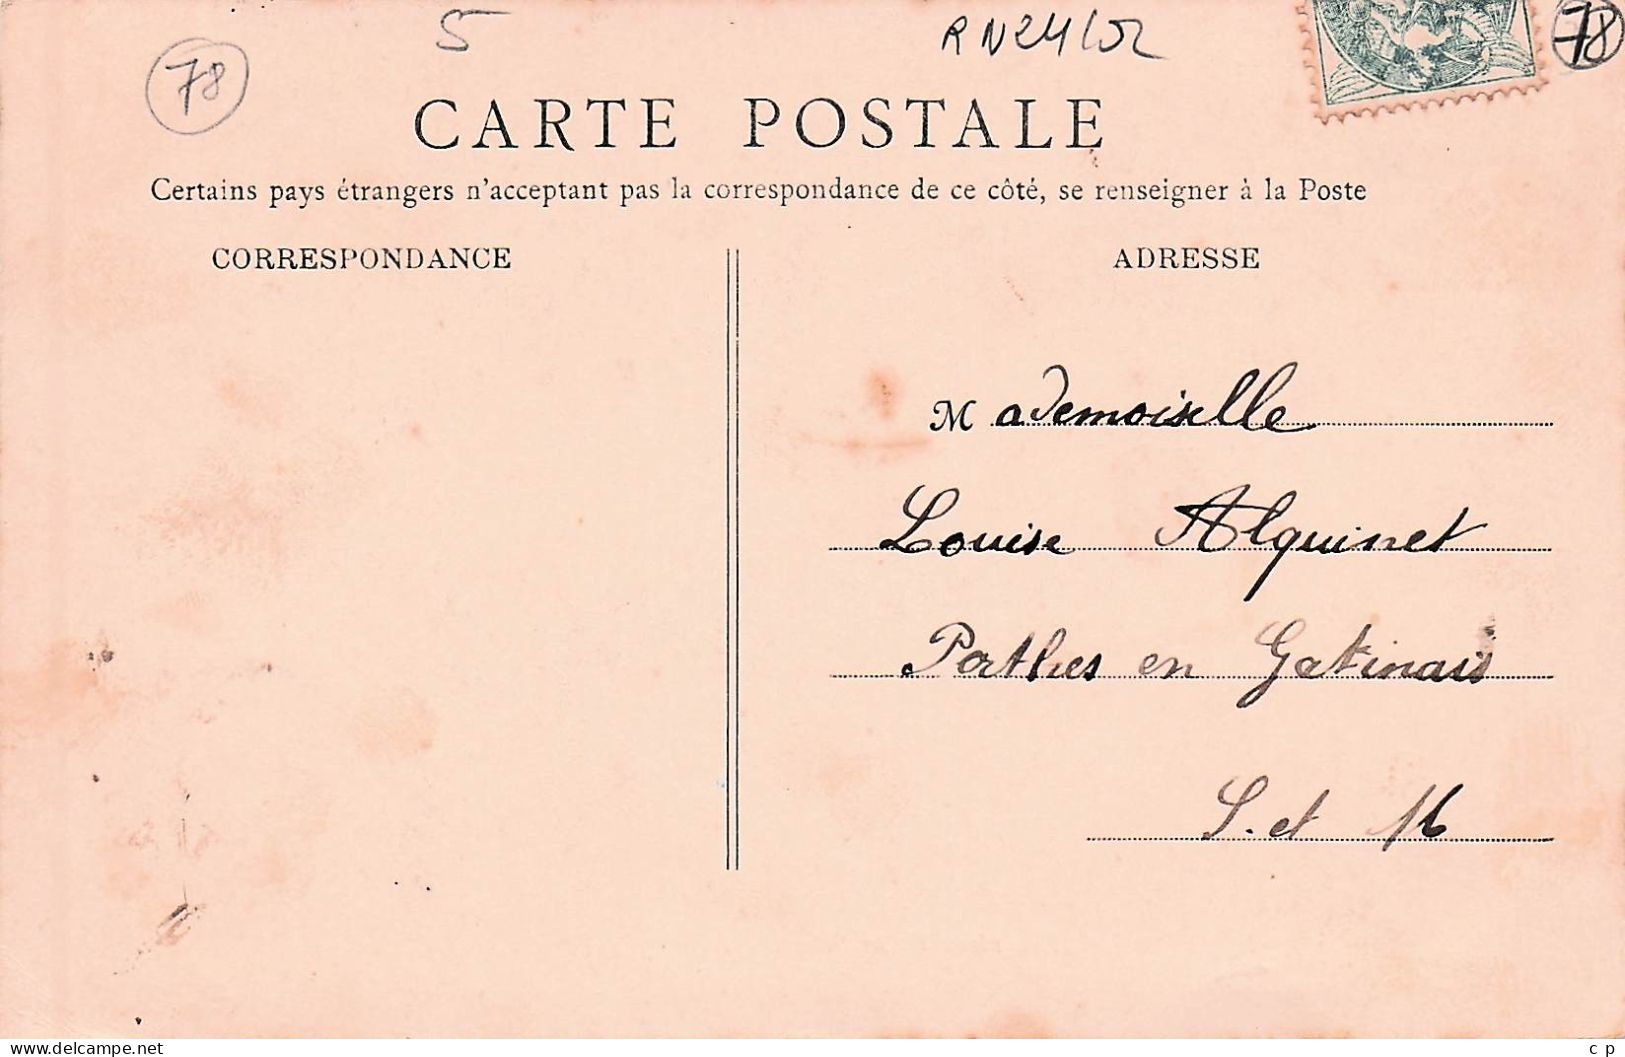 78
5
RN24/02
78
CARTE POSTALE
Certains pays étrangers n'acceptant pas la correspondance de ce côté, se renseigner à la Poste
CORRESPONDANCE
ADRESSE
Mademoiselle
Louise Alquinet
Perthes en Gatinais
S. et M
www.delcampe.net
c p